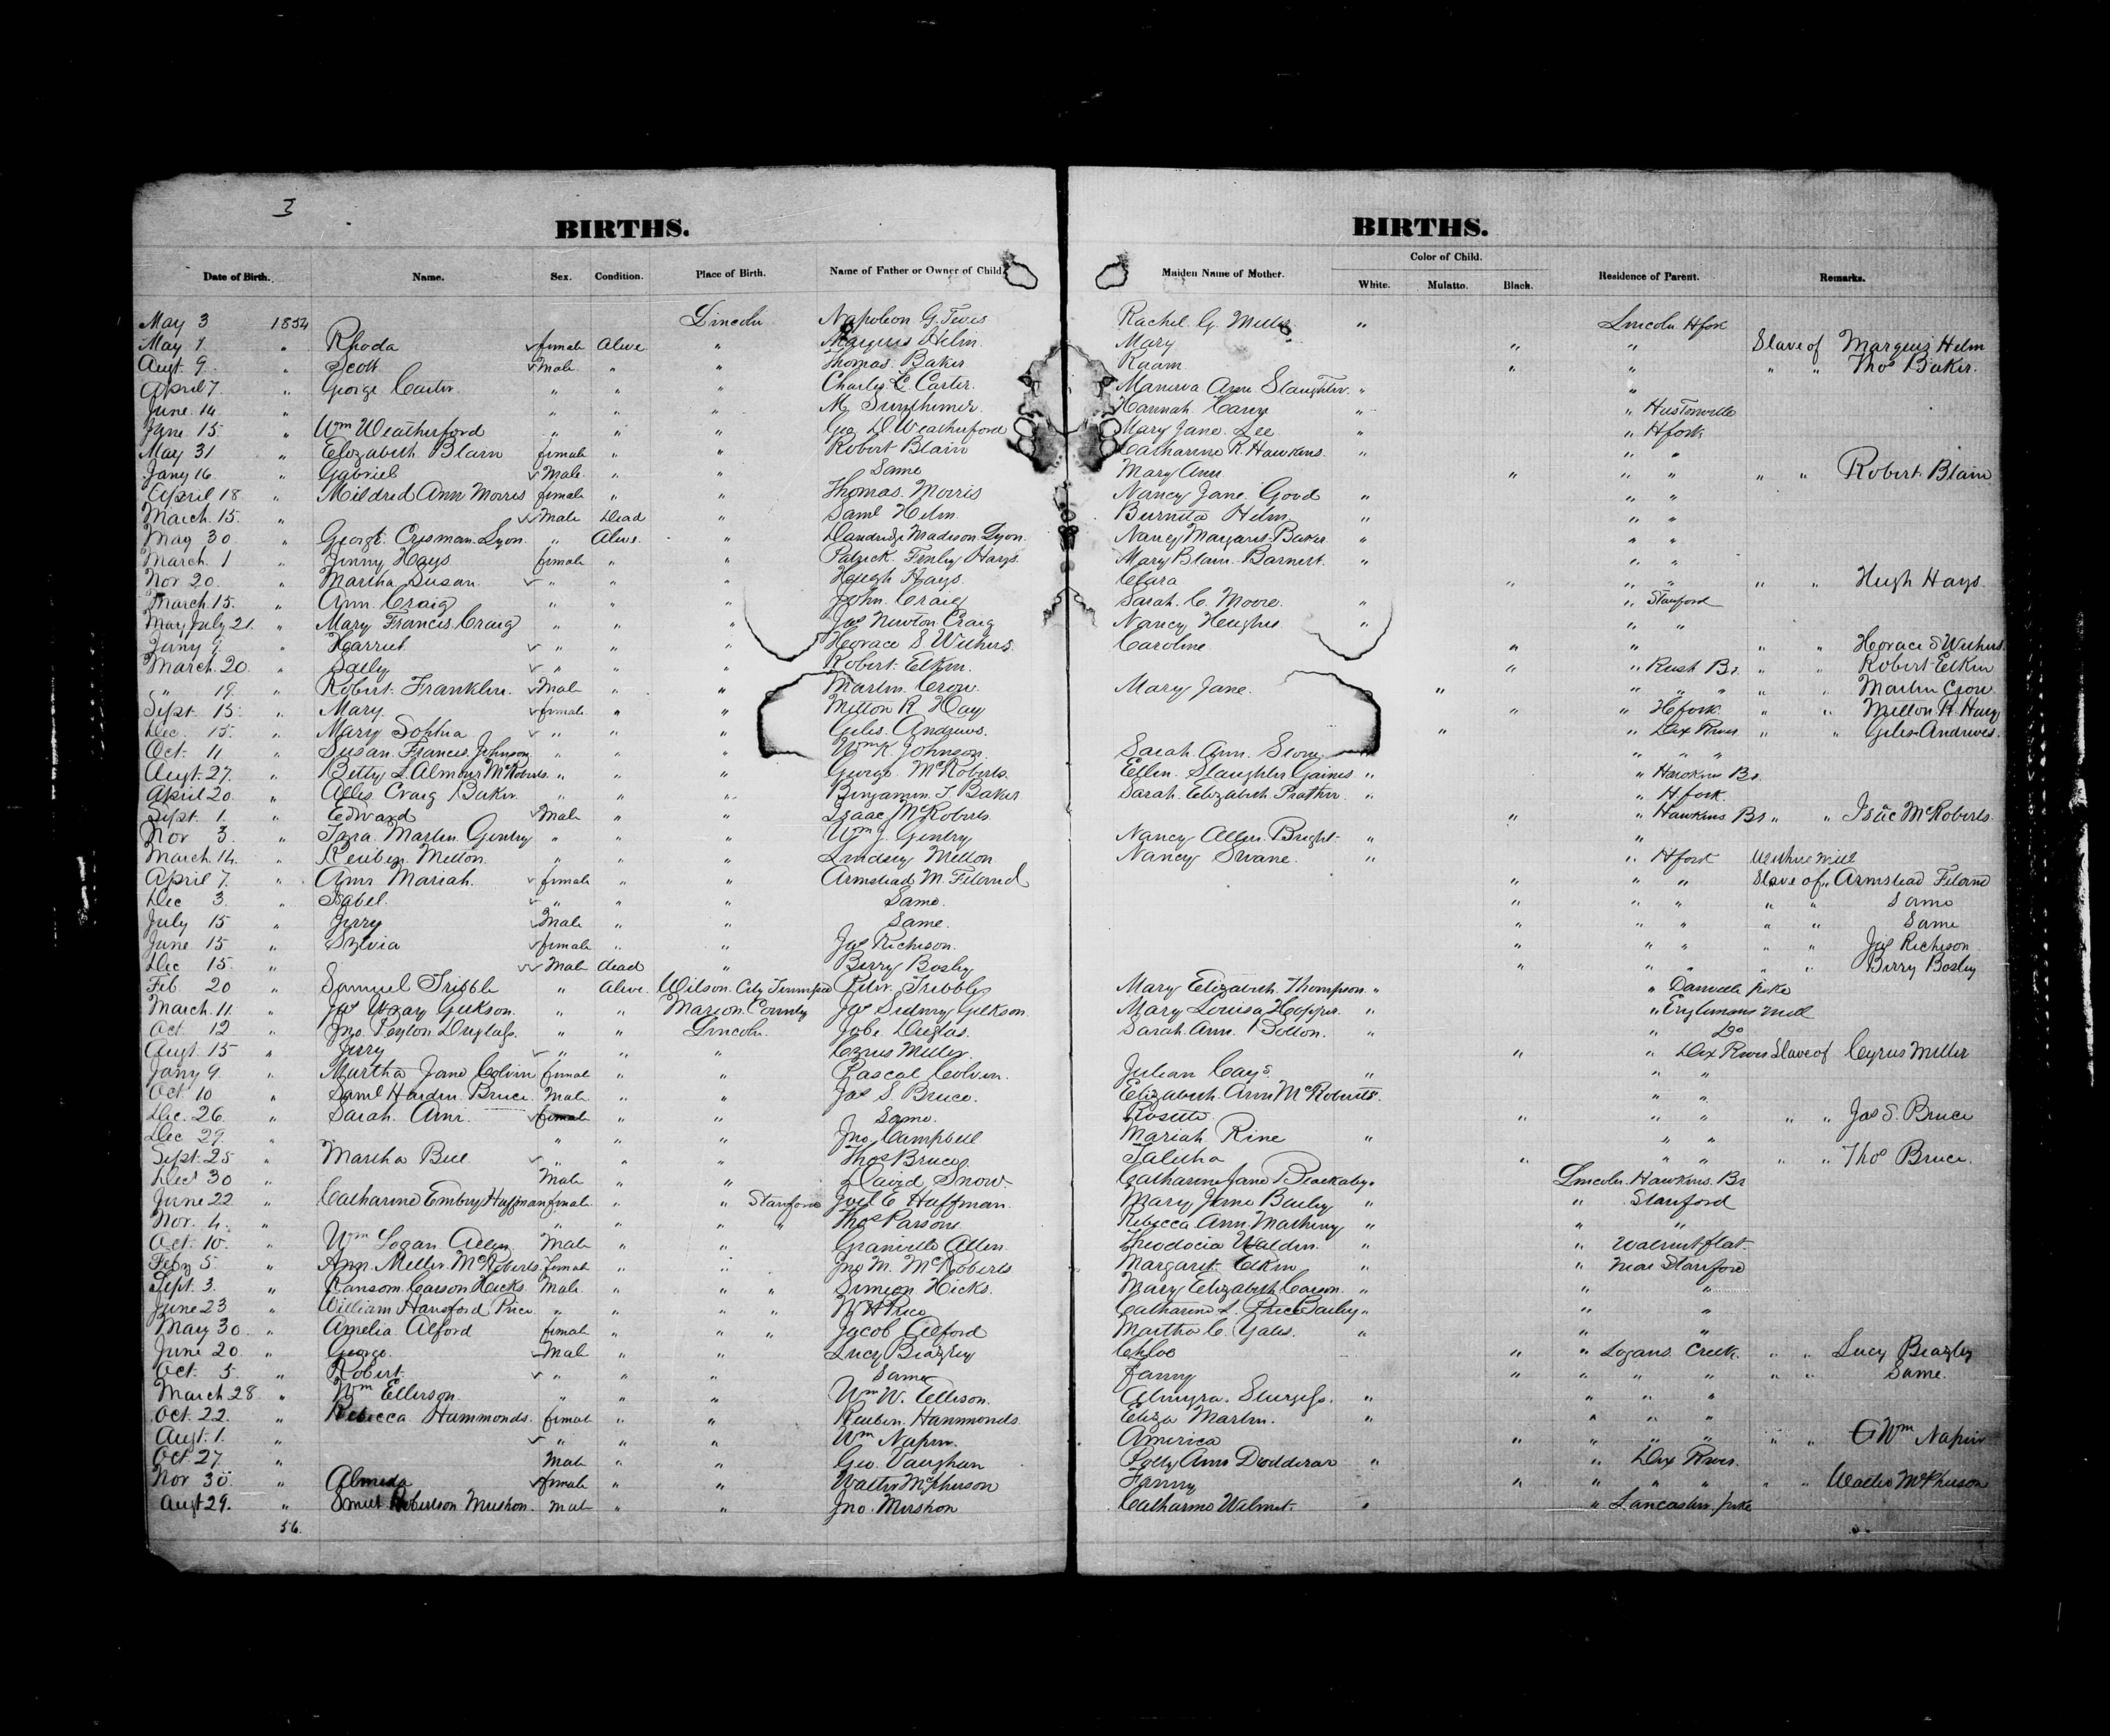 3
BIRTHS. BIRTHS.
Date of Birth. Name. Sex. Condition. Place of Birth. Name of Father or Owner of Child. Maiden Name of Mother. Color of Child. White. Mulatto. Black. Residence of Parent. Remarks.
May 3 1854 Lincoln Napoleon G. Tevis Rachel G. Miller " Lincoln Hfork
May 1 " Rhoda female Alive " Marquis Helm Mary " " Slave of Marquis Helm
Augt 9 " Scott Male " " Thomas Baker " " " " Thos Baker.
April 7 " George Carter " " " Charles C. Carter Manerva Ann Slaughter " "
June 14 " " " " M. Hannah " " Hustonville
June 15 " Wm Weatherford " " " Geo D Weatherford Mary Jane Lee " " Hfork
May 31 " Elizabeth Blain female " " Robert Blain Catharine R. Hawkins " " "
Jany 16 " Gabriel Male " " Same Mary Ann " " " " " Robert Blain
April 18 " Mildred Ann Morris female " " Thomas Morris Nancy Jane Good " " "
March 15 " Male Dead " Saml Helm Burnetta Helm " " "
May 30 " George Crisman Lyon " Alive " Dandridge Madison Lyon Nancy Margaret Baker " " "
March 1 " Jinny Hays female " " Patrick Finley Hays Mary Blain Barnett " " "
Nov 20 " Martha Susan " " " Hugh Hays Clara " " " " " Hugh Hays
March 15 " Ann Craig " " " John Craig Sarah C. Moore " " Stanford
May July 21 " Mary Francis Craig " " " Jas Newton Craig Nancy Hughes " " "
Jany 9 " Harriet " " " Horace S Withers Caroline " " " " Horace S Withers
March 20 " Sally " " " Robert Elkin " " Rush Br " " Robert Elkin
" 19 " Robert Franklin Male " " Martin Crow Mary Jane " " " " " " Martin Crow
Sept 15 " Mary female " " Milton R Hay " " Hfork " " Milton R. Hay
Dec 15 " Mary Sophia " " " Giles Andrews " " Dix River " " Giles Andrews
Oct 11 " Susan Francis Johnson " " " Wm K Johnson Sarah Ann " " "
Augt 27 " Betty L Almour McRoberts " " " George McRoberts Ellen Slaughter Gaines " " Hawkins Br.
April 20 " Craig Baker " " " Benjamin T. Baker Sarah Elizabeth Prather " " H.fork.
Sept 1 " Edward Male " " Isaac McRoberts " " Hawkins Br " " Isac McRoberts
Nov 3 " Martin Gentry " " " Wm J. Gentry Nancy Allen Bright " "
March 14 " Reuben Melton " " " Lindsey Melton Nancy Swane " " Hford
April 7 " Ann Mariah female " " Armstead M. " " " Slave of " Armstead
Dec 3 " Isabel " " " Same " " " " " Same
July 15 " Jerry Male " " Same " " " " " Same
June 15 " Sylvia female " " Jas Richeson " " " " " Jas Richeson
Dec 15 " Male dead " Berry Bosley " " " " " Berry Bosley
Feb 20 " Samuel Tribble " Alive Wilson Cty Tennessee Tribble Mary Elizabeth Thompson " " Danville pike
March 11 " Jas Wray Gilkson " " Marion County Jas Sidney Gilkson Mary Louisa Hopper " " Englemans Mill
Oct 12 " Jno. Peyton Duglass " " Lincoln Jabe Duglas Sarah Ann Bolton " " Do
Augt 15 " Jerry " " " Cyrus Miller " " Dix River Slave of Cyrus Miller
Jany 9 " Martha Jane Colvin female " " Pascal Colvin Julian Cays " " "
Oct 10 " Saml Harden Bruce Male " " Jas S Bruce Elizabeth Ann McRoberts " " "
Dec 26 " Sarah Ann female " " Same Rosetta " " " " " Jas S. Bruce
Dec 29 " " " " Jno Campbell Mariah Rine " " "
Sept 25 " Martha Bell " " " Thos Bruce Talitha " " " " " Thos Bruce
Dec 30 " Male " " David Snow Catharine Jane Blackaby " Lincoln Hawkins Br
June 22 " Catharine Embry Huffman female " " Stanford Joel E Huffman Mary Jane Bailey " " Stanford
Nov. 4 " " " " " Thos Parsons Rebecca Ann Matheny " " "
Oct 10 " Wm Logan Allen Male " " Granville Allen Theodocia Walden " " Walnut flat
Feby 5 " Ann Miller McRoberts female " " Jno M. McRoberts Margaret Elkin " " Near Stanford
Sept 3 " Ransom Carson Hicks Male " " " Simeon Hicks Mary Elizabeth Carson " " "
June 23 " William Hansford Price " " " " W H Price Catharine L. Price Bailey " " "
May 30 " Amelia Alford female " " " Jacob Alford Martha C. Yates " " "
June 20 " George Male " " Lucy Beazley Chloe " " Logans Creek " " Lucy Beazley
Oct 5 " Robert " " " Same Fanny " " " " " " Same
March 28 " Wm Ellerson " " " Wm W. Ellison Almyra Sturgess " " " "
Oct. 22 " Rebecca Hammonds female " " Reuben Hammonds Eliza Martin " " " "
Augt 1 " " " " Wm Napier America " " " " " " Wm Napier
Oct 27 " Male " " Geo. Vaughan Polly Ann Dodderar " " Dix River
Nov 30 " Almeda female " " Walter McPherson Fanny " " " " " " Walter McPherson
Augt 29 " Robertson Mershon male " " Jno. Mershon Catharine Wilmot " " Lancaster pike
56